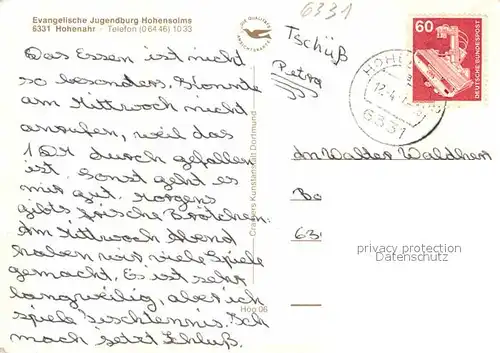 Evangelische Jugendburg Hohensolms
6331 Hohenahr - Telefon (0 64 46) 10 33
6331
Das Essen ist nicht
so besonders. Konnte
am Mittwoch nicht
anrufen, weil das
1 Dr durch gefallen
ist. Sonst geht es
mir gut. Morgens
gibts frische Brötchen.
Am Mittwoch Abend
haben wir viel Spiele
gemacht. Es ist sehr
langweilig, aber ich
spiele Tischtennis. Ich
mach jetzt Schluß.
Tschüß
Petra
Crameers Kunstanstalt Dortmund
Hoo 06
60
DEUTSCHE BUNDESPOST
6331
An Walter Waldherr
Bo
63
privacy protection
Datenschutz